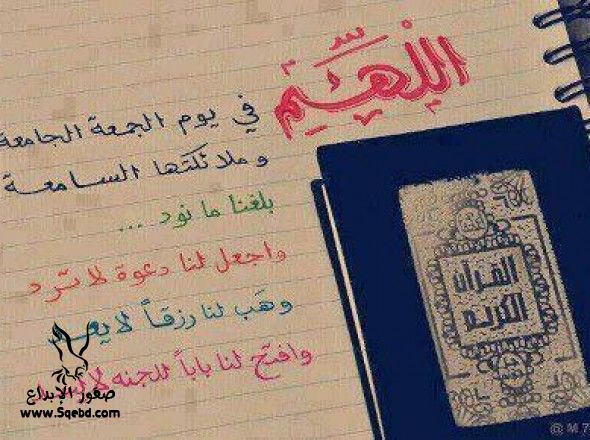 اللهم
في يوم الجمعة الجامعة
وملائكتها السامعة
بلغنا ما نود ...
واجعل لنا دعوة لا ترد
وهَب لنا رزقاً لا
وافتح لنا باباً للجنه لا
القرآن
الكريم
صقور الإبداع
www.Sqebd.com